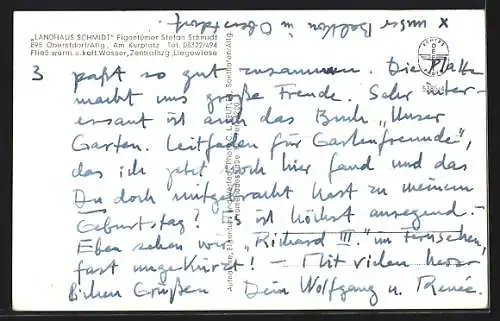 x unser Balkon in Oberstdorf
„LANDHAUS SCHMIDT" Eigentümer Stefan Schmidt
898 Oberstdorf/Allg., Am Kurplatz Tel. 08322/494
Fließ. warm. u. kalt. Wasser, Zentralhzg., Liegewiese
3 paßt so gut zusammen. Die Platte
macht uns große Freude. Sehr inter-
essant ist auch das Buch „Unser
Garten. Leitfaden für Gartenfreunde",
das ich jetzt noch hier fand und das
Du doch mitgebracht hast zu meinem
Geburtstag? Es ist höchst anregend. -
Eben sehen wir „Richard III." im Fernsehen,
fast ungekürzt! - Mit vielen herz-
lichen Grüßen Dein Wolfgang u. Renée.